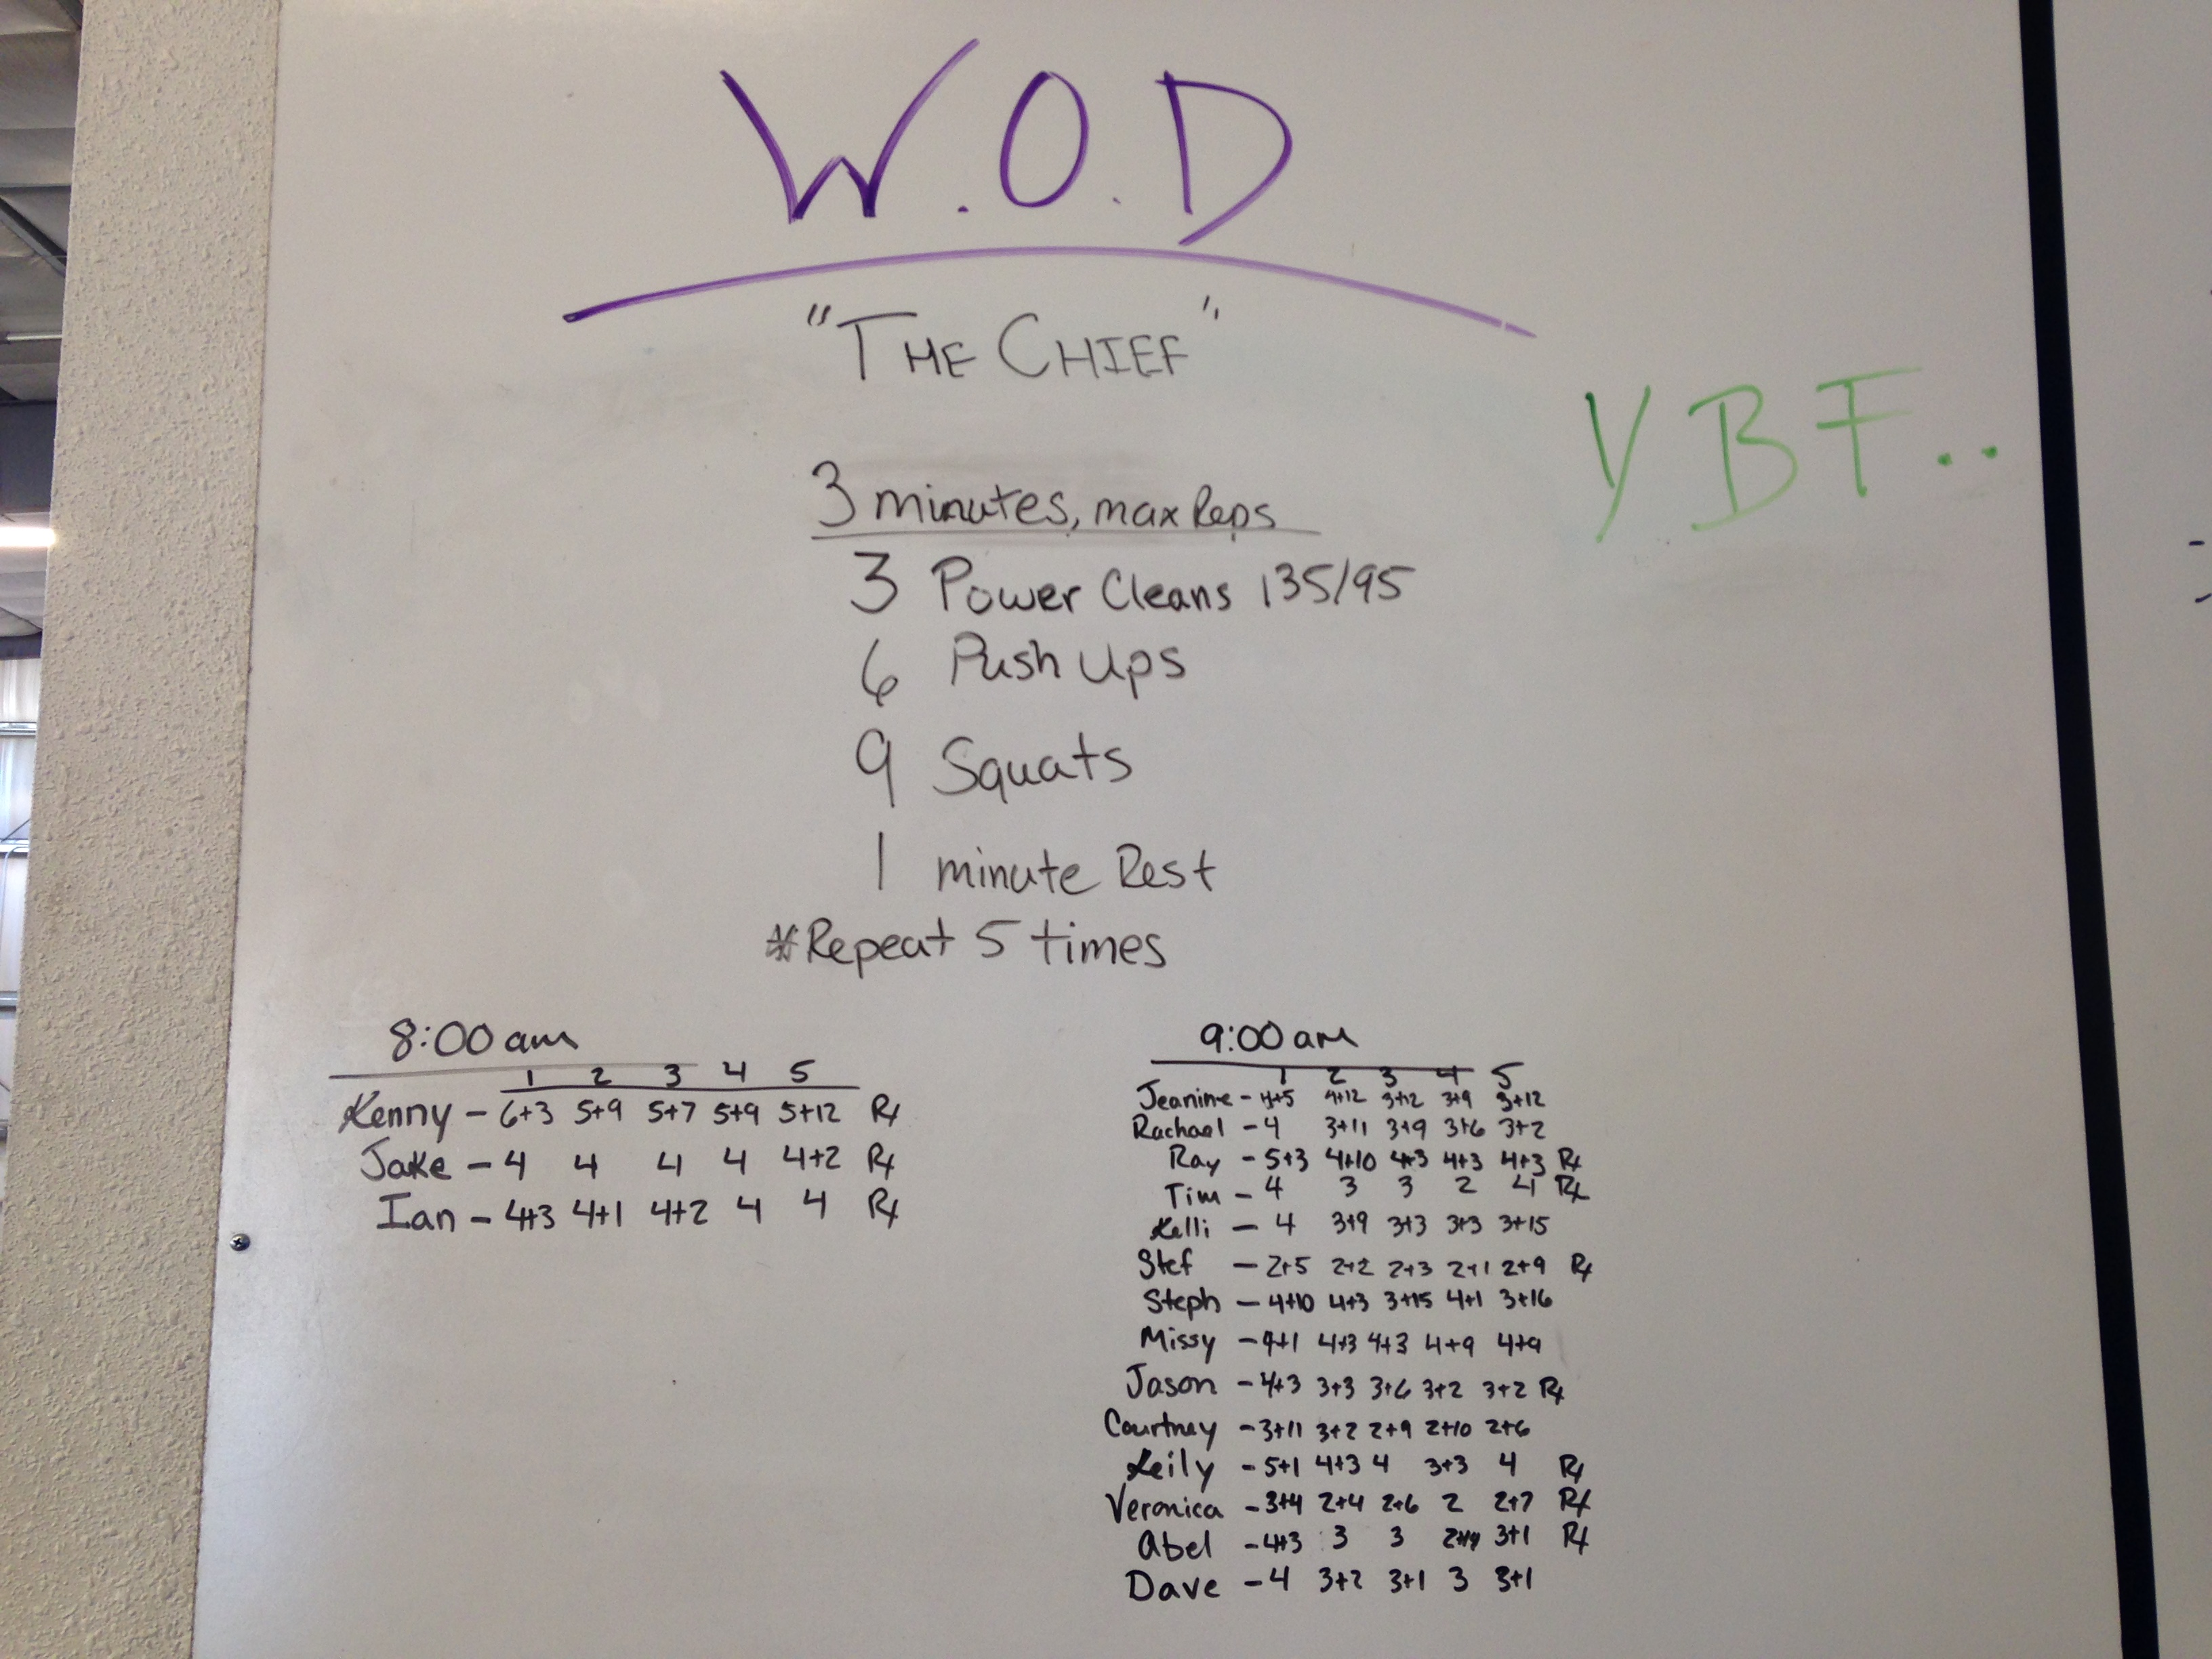 W.O.D
"THE CHIEF"
YBF..
3 minutes, max Reps
3 Power Cleans 135/95
6 Push Ups
9 Squats
1 minute Rest
*Repeat 5 times
8:00 am
1 2 3 4 5
Kenny - 6+3 5+9 5+7 5+9 5+12 Rx
Jake - 4 4 4 4 4+2 Rx
Ian - 4+3 4+1 4+2 4 4 Rx
9:00 am
1 2 3 4 5
Jeanine - 4+5 4+12 3+12 3+9 3+12
Rachael - 4 3+11 3+9 3+6 3+2
Ray - 5+3 4+10 4+3 4+3 4+3 Rx
Tim - 4 3 3 2 4 Rx
Kelli - 4 3+9 3+3 3+3 3+15
Stef - 2+5 2+2 2+3 2+1 2+9 Rx
Steph - 4+10 4+3 3+15 4+1 3+16
Missy - 4+1 4+3 4+3 4+9 4+9
Jason - 4+3 3+3 3+6 3+2 3+2 Rx
Courtney - 3+11 3+2 2+9 2+10 2+6
Keily - 5+1 4+3 4 3+3 4 Rx
Veronica - 3+4 2+4 2+6 2 2+7 Rx
Abel - 4+3 3 3 3+1 Rx
Dave - 4 3+2 3+1 3 3+1